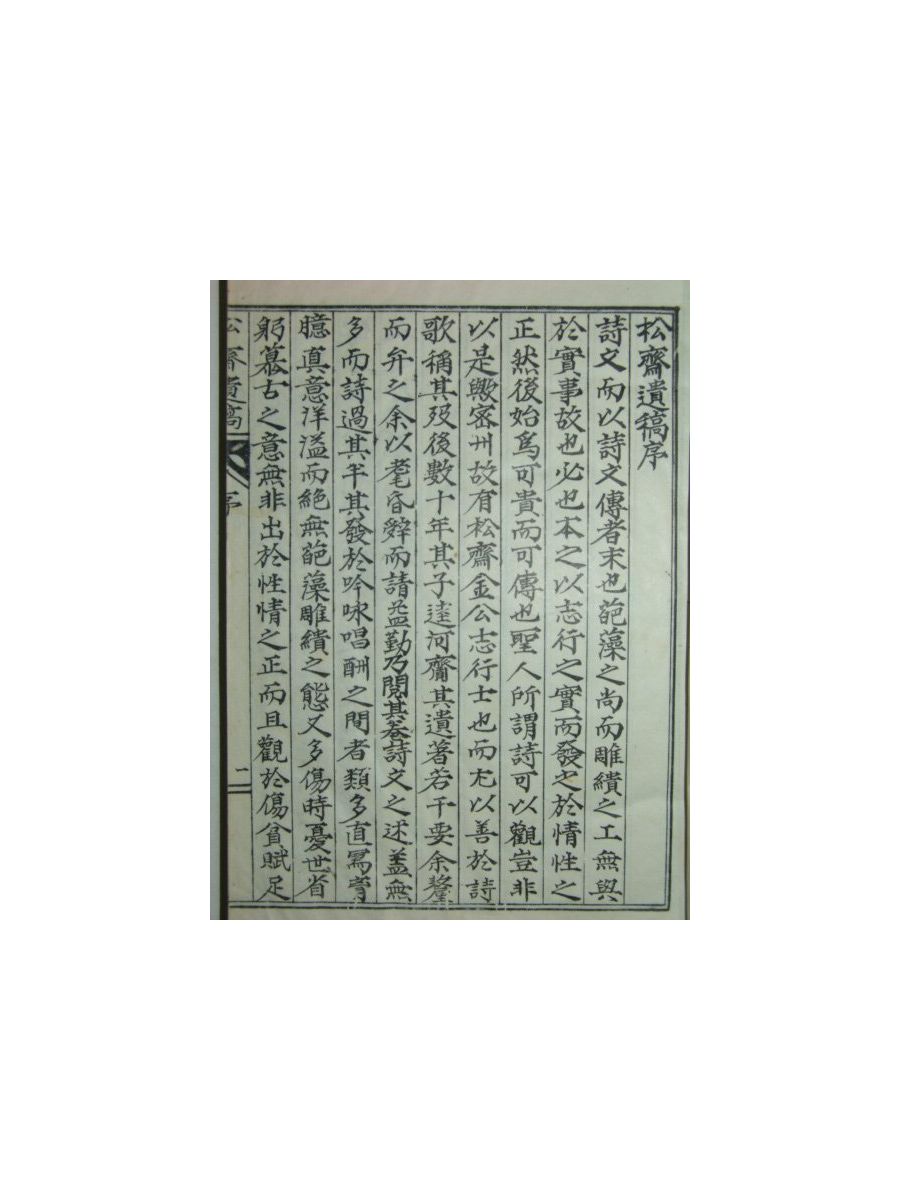 松齋遺稿序
詩文而以詩文傳者末也葩藻之尚而雕繢之工無與
於實事故也必也本之以志行之實而發之於情性之
正然後始爲可貴而可傳也聖人所謂詩可以觀豈非
以是歟密州故有松齋金公志行士也而尤以善於詩
歌稱其歿後數十年其子逵河齎其遺著若干要余釐
而弁之余以耄昏辭而請益勤乃閱其卷詩文之述盖無
多而詩過其半其發於吟咏唱酬之間者類多直寫胷
臆真意洋溢而絕無葩藻雕繢之態又多傷時憂世省
躬慕古之意無非出於性情之正而且觀於傷貧賦足
松齋遺稿 序 二